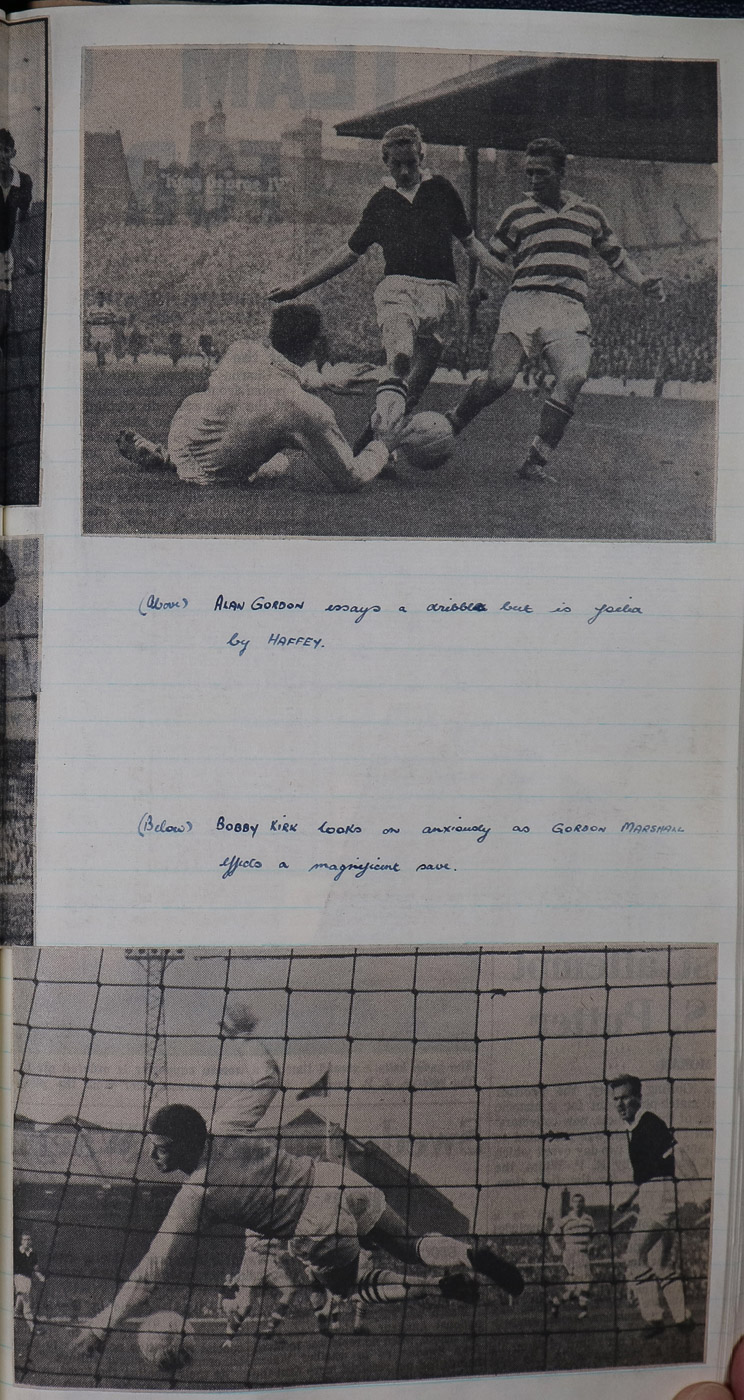 TEAM
"King George IV"
(Above) ALAN GORDON essays a dribble but is foiled
by HAFFEY.
(Below) BOBBY KIRK looks on anxiously as GORDON MARSHALL
effects a magnificent save.